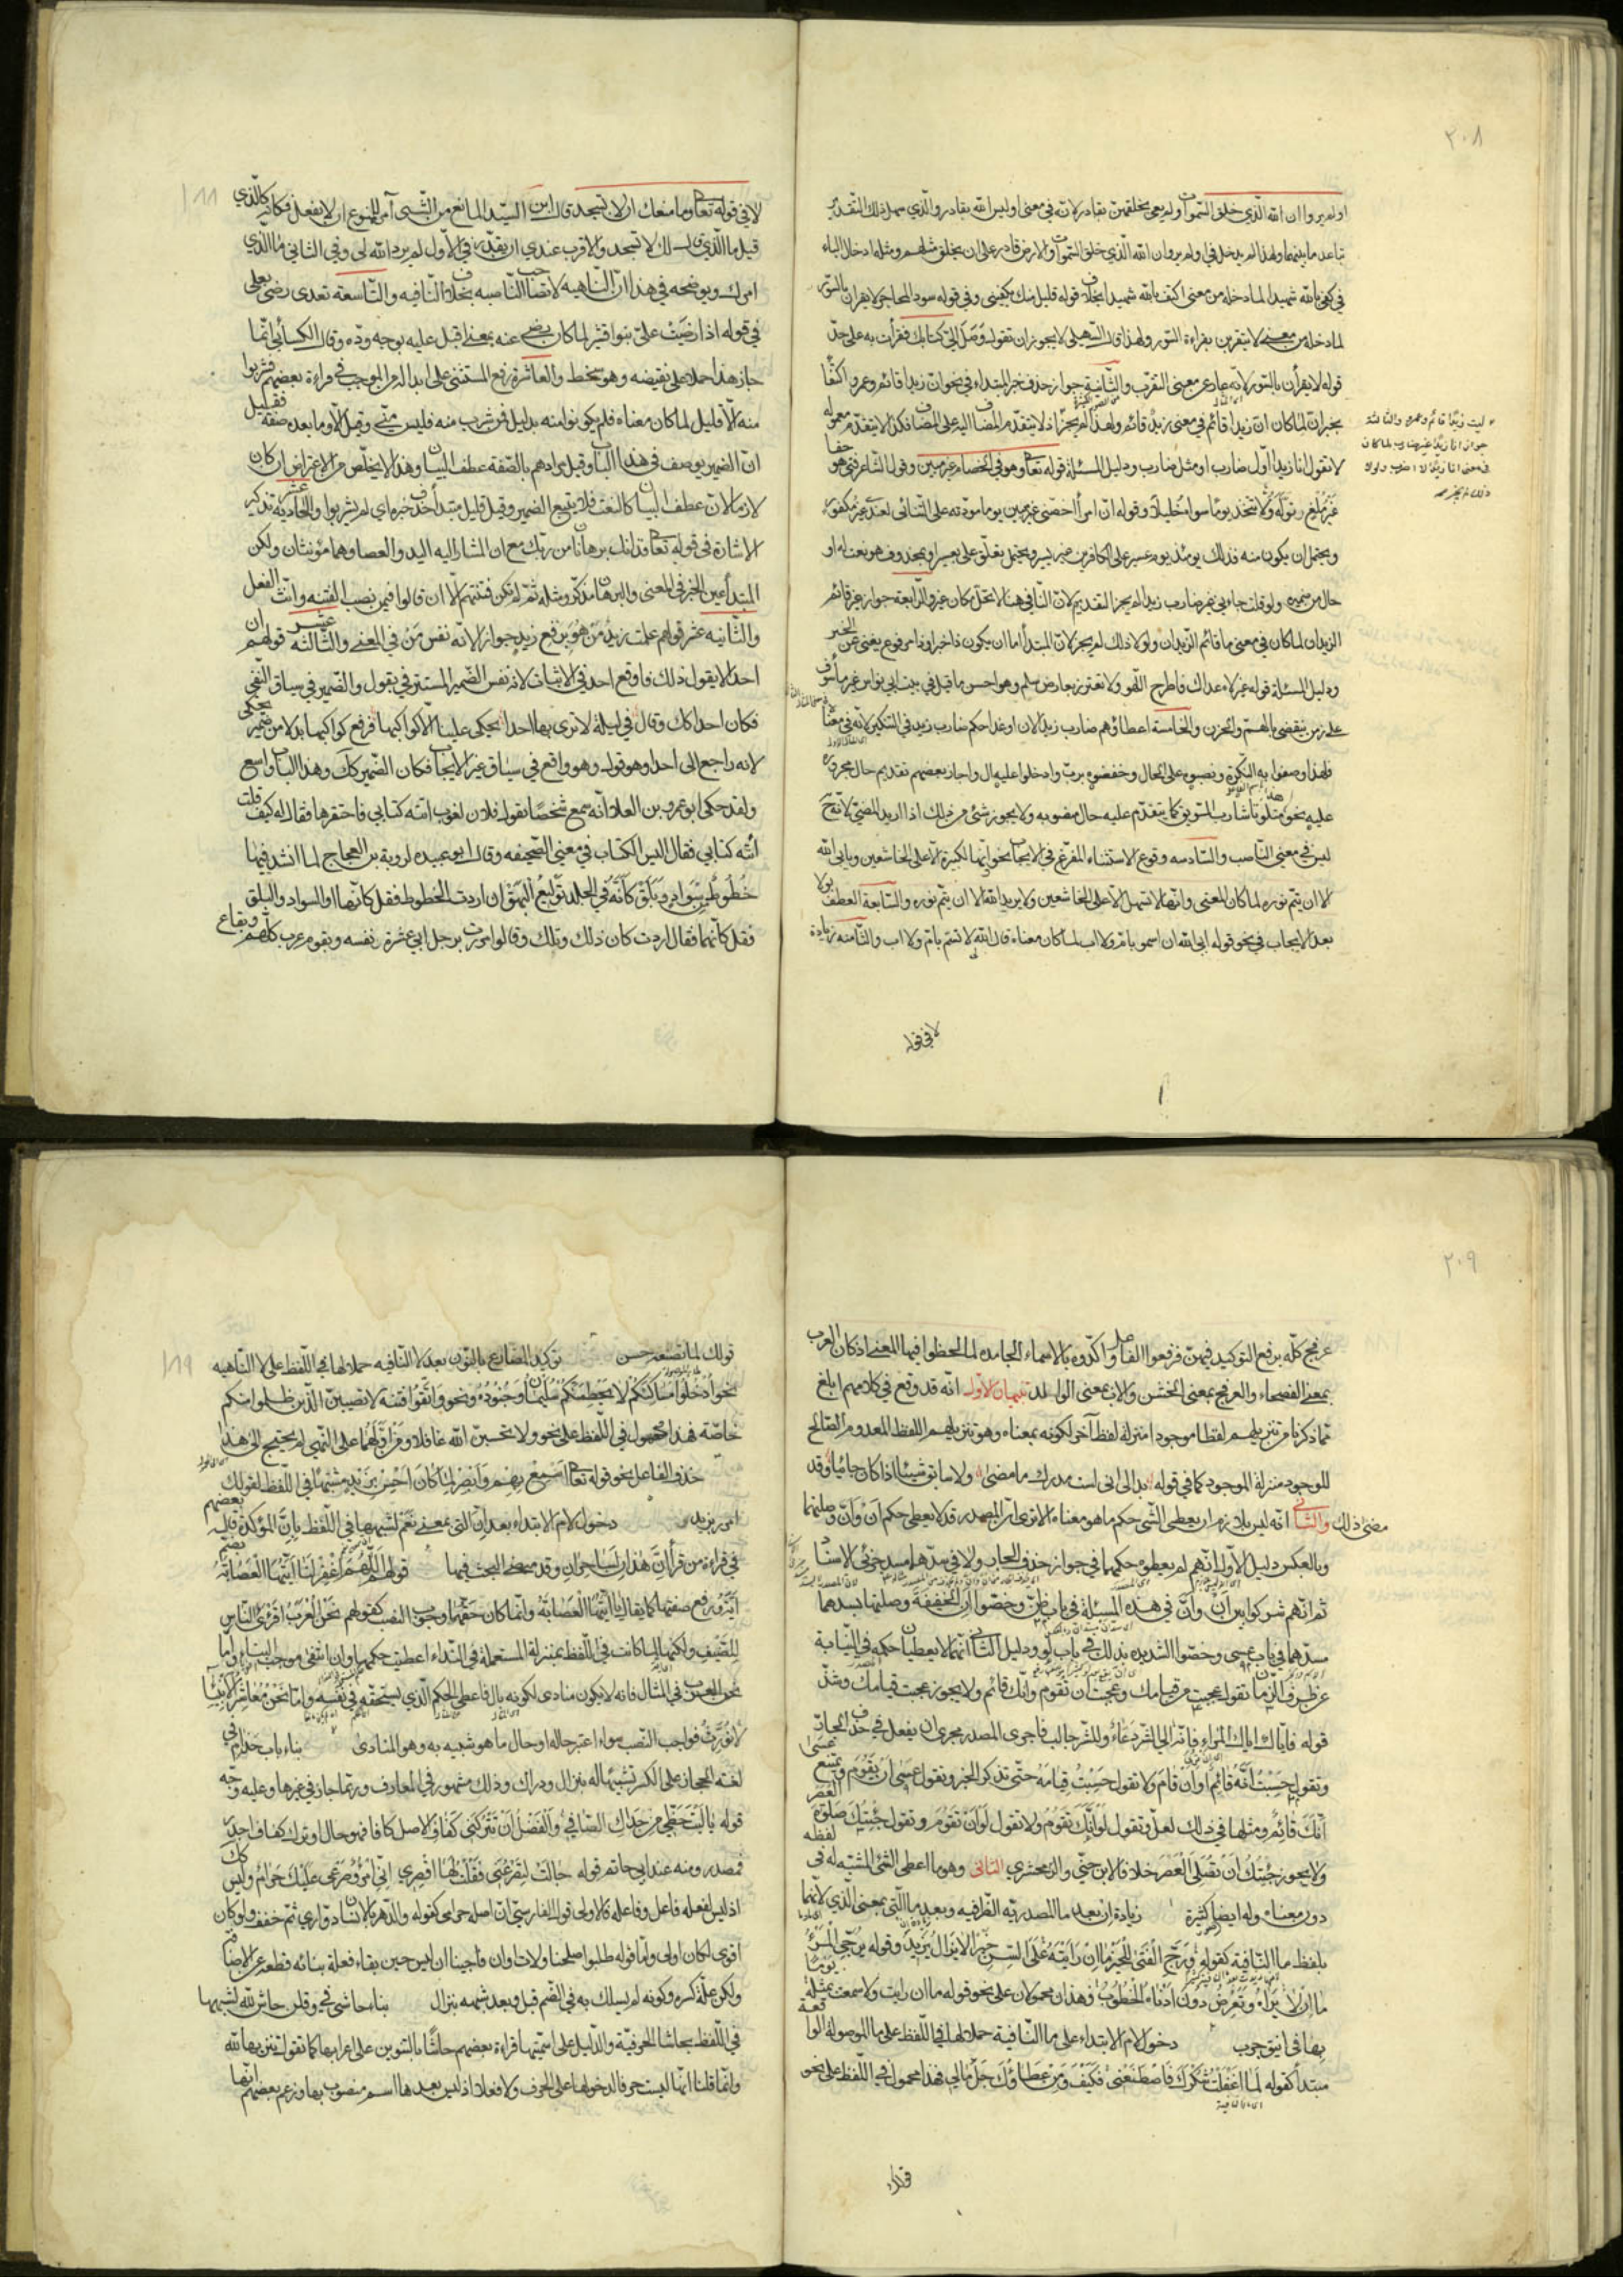 ٢٠٨
اولم يروا ان الله الذي خلق السموات ولم يعي بخلقهن بقادر لانه في معنى اوليس الله بقادر والذي سهل ذلك التقدير
تباعد ما بينهما ولهذا لم يدخل في اولم يروا ان الله الذي خلق السموات والارض قادر على ان يخلق مثلهم ومثله ادخال الباء
في كفى بالله شهيدا لما دخله من معنى اكتف بالله شهيدا بخلاف قوله قليل منك يكفيني وفي قوله سود المحاجر لا يقرأن بالسور
لما دخله من معنى لا يتقربن بقراءة السور ولهذا قال السهيلي لا يجوز ان تقول وصل الي كتابك فقرأت به على حد
قوله لا يقرأن بالسور لانه عار عن معنى التقرب والثانية جواز حذف خبر المبتداء في نحو ان زيدا قائم وعمرو اكتفاء
بخبر ان لما كان ان زيدا قائم في معنى زيد قائم ولهذا لم يجز
ليت زيدا قائم وعمرو والثالثة
جواز انا زيدا غير ضارب لما كان
في معنى انا زيدا لا اضرب ولولا
ذلك لم يجز
اذ لا يتقدم المضاف اليه على المضاف فكذا لا يتقدم معموله
لا تقول انا زيدا اول ضارب او مثل ضارب ودليل المسئلة قوله تعالى وهو في الخصام غير مبين وقول الشاعر فتى هو حقا
غير ملغ تولّه ولا تتخذ يوما سواه خليلا وقوله ان امرأ خصني يوما مودته على التنائي لعندي غير مكفور
ويحتمل ان يكون منه فذلك يومئذ يوم عسير على الكافرين غير يسير ويحتمل تعلق على بعسير او بمحذوف هو نعت له او
حال من ضميره ولو قلت جاءني غير ضارب زيدا لم يجز التقديم لان النافي هنا لا يحل مكان غير والرابعة جواز غير قائم
الزيدان لما كان في معنى ما قائم الزيدان ولولا ذلك لم يجز لان المبتدأ اما ان يكون ذا خبر او ذا مرفوع يغني عن الخبر
ودليل المسئلة قوله غير لاه عداك فاطرح اللهو ولا تغترر بعارض سلم وهو احسن ما قيل في بيت ابي نواس غير مأسوف
على زمن ينقضي بالهم والحزن والخامسة اعطاؤهم ضارب زيد الان او غدا حكم ضارب زيدا في التنكير لانه في معناه
فلهذا وصفوا به النكرة ونصبوه على الحال وخفضوه برب وادخلوا عليه ال واجاز بعضهم تقديم حال مجروره
عليه نحو هذا ملتوتا شارب السويق كما يتقدم عليه حال منصوبه ولا يجوز شئ من ذلك اذا اريد المضي لانه ح
ليس في معنى الناصب والسادسه وقوع الاستثناء المفرغ في الايجاب نحو وانها لكبيرة الا على الخاشعين ويابى الله
الا ان يتم نوره لما كان المعنى وانها لا تسهل الا على الخاشعين ولا يريد الله الا ان يتم نوره والسابعة العطف بولا
بعد الايجاب في نحو قوله ابى الله ان اسمو بام ولا اب لما كان معناه قال الله لا تسم بام ولا اب والثامنه زيادة
لا في قوله
١٨٨
لا في قوله تعالى وما منعك ان لا تسجد قال ابن السيد المانع من الشئ آمر للممنوع ان لا يفعل فكانه كالذي
قيل ما الذي قال لك لا تسجد والاقرب عندي ان يقدر في الاول لم يرد الله لي وفي الثاني ما الذي
امرك ويوضحه في هذا ان الناهيه لا تصاحب الناصبه بخلاف النافيه والتاسعة تعدى رضي بعلى
في قوله اذا رضيت علي بنو قشير لما كان رضي عنه بمعنى اقبل عليه بوجه وده وقال الكسائي انما
جاز هذا حملا على نقيضه وهو سخط والعاشرة رفع المستثنى على ابداله من الموجب في قراءة بعضهم فشربوا
منه الا قليل لما كان معناه فلم يكونوا منه بدليل فمن شرب منه فليس مني وقيل الا وما بعده صفة فقيل
ان الضمير يوصف في هذا الباب وقيل مرادهم بالصفة عطف البيان وهذا لا يخلص من الاعتراض ان كان
لازما لان عطف البيان كالنعت فلا يتبع الضمير وقيل قليل مبتدأ حذف خبره اي لم يشربوا والحادية عشر تذكير
الاشارة في قوله تعالى فذانك برهانان من ربك مع ان المشار اليه اليد والعصا وهما مؤنثان ولكن
المبتدأ عين الخبر في المعنى والبرهان مذكر ومثله ثم لم تكن فتنتهم الا ان قالوا فيمن نصب الفتنه وانث الفعل
والثانيه عشر قولهم علمت زيد من هو برفع زيد جوازا لانه نفس من في المعنى والثالثة عشر قولهم ان
احدا لا يقول ذلك فاوقع احد في الاثبات لانه نفس الضمير المستتر في يقول والضمير في سياق النفي
فكان احدا كك وقال في ليلة لا نرى بها احدا يحكي علينا الا كواكبها فرفع كواكبها بدلا من ضمير يحكي
لانه راجع الى احدا وهو واقع في سياق غير الايجاب فكان الضمير كك وهذا الباب واسع
ولقد حكى ابو عمرو بن العلا انه سمع شخصا يقول فلان لغوب اتته كتابي فاحتقرها فقال له كيف قلت
اتته كتابي فقال اليس الكتاب في معنى الصحيفه وقال ابو عبيده لروبة بن العجاج لما انشد فيها
خطوط من سواد وبلق كانه في الجلد توليع البهق ان اردت الخطوط فقل كانها او السواد والبلق
فقل كانهما فقال اردت كان ذلك ويلك وقالوا مررت برجل ابي عشرة نفسه وبقوم عرب كلهم وبقاع
٢٠٩
عرفج كله برفع التوكيد فيهن فرفعوا الفاعل واكدوه بالاسماء الجامده لما لحظوا فيها المعنى اذ كان العرب
بمعنى الفصحاء والعرفج بمعنى الخشن والاب بمعنى الوالد تنبيهان الاول انه قد وقع في كلامهم ابلغ
مما ذكرنا من تنزيلهم لفظا موجودا منزلة لفظ آخر لكونه بمعناه وهو تنزيلهم اللفظ المعدوم الصالح
للوجود منزلة الموجود كما في قوله بدا لي اني لست مدرك ما مضى ولا سابق شيئا اذا كان جائيا وقد
مضى ذلك والثاني انه ليس بلازم ان يعطى الشئ حكم ما هو معناه الا ترى ان المصدر قد لا يعطى حكم ان وان وصلتهما
وبالعكس دليل الاول انهم لم يعطوه حكمهما في جواز حذف الجار ولا في سدهما مسد جزئي الاسناد
ثم انهم شركوا بين ان وان في هذه المسئلة في باب ظن وخصوا ان الخفيفة وصلتها بسدها
مسدهما في باب عسى وخصوا الشديده بذلك في باب لو ودليل الثاني انهما لا يعطيان حكمه في النيابة
عن ظرف الزمان تقول عجبت من قيامك وعجبت ان تقوم وانك قائم ولا يجوز عجبت قيامك وشذ
قوله فاياك اياك المراء فانه الى الشر دعاء وللشر جالب فاجرى المصدر مجرى ان يفعل في حذف الجار
وتقول حسبت انه قائم او ان قام ولا تقول حسبت قيامه حتى تذكر الخبر وتقول عسى ان يقوم ويمتنع عسى
انك قائم ومثلها في ذلك لعل وتقول لو انك تقوم ولا تقول لو ان تقوم وتقول جئتك صلوة العصر
ولا يجوز جئتك ان تصلي العصر خلافا لابن جني والزمخشري الثاني وهو ما اعطى الشئ المشبه له في لفظه
دون معناه وله ايضا كثيرة زيادة ان بعد ما المصدرية الظرفيه وبعد ما التي بمعنى الذي لانهما
بلفظ ما النافية كقوله ورج الفتى للخير ما ان رايته على السن خيرا لا يزال يزيد وقوله يرجي المرء
ما ان لا يراه وتعرض دون ادناه الخطوب فهذان محمولان على نحو قوله ما ان رايت ولا سمعت بمثله يوما
بها في انيق جوب دخول لام الابتداء على ما النافية حملا لها في اللفظ على ما الموصولة الواقعة
مبتدأ كقوله لما اغفلت شكرك فاصطنعني فكيف ومن عطاؤك جل مالي فهذا محمول في اللفظ على نحو
قولك
١٨٩
قولك لما تصنعه حسن توكيد المضارع بالنون بعد لا النافيه حملا لها في اللفظ على لا الناهيه
نحو ادخلوا مساكنكم لا يحطمنكم سليمان وجنوده ونحو واتقوا فتنة لا تصيبن الذين ظلموا منكم
خاصة فهذا محمول في اللفظ على نحو ولا تحسبن الله غافلا ومن اولهما على النهي لم يحتج الى هذا
حذف الفاعل نحو قوله تعالى اسمع بهم وابصر لما كان احسن بزيد مشبها في اللفظ لقولك
امرر بزيد دخول لام الابتداء بعد ان التي بمعنى نعم لشبهها في اللفظ بان المؤكدة قاله بعضهم
في قراءة من قرأ ان هذان لساحران وقد مضى البحث فيها قولهم اللهم اغفر لنا ايتها العصابة بضم
اية ورفع صفتها كما يقال يا ايتها العصابة وانما كان حقها وجوب النصب كقولهم نحن العرب اقرى الناس
للضيف ولكنها لما كانت في اللفظ بمنزلة المستعملة في النداء اعطيت حكمها وان انتفى موجب البناء واما
نحن العرب في المثال فانه لا يكون منادى لكونه بال فاعطي الحكم الذي يستحقه في نفسه واما نحن معاشر الانبياء
لا نورث فواجب النصب سواء اعتبر حاله او حال ما هو شبيه به وهو المنادى بناء باب حذام في
لغة الحجاز على الكسر تشبيها له بنزال ودراك وذلك مشهور في المعارف وربما جاز في غيرها وعليه وجه
قوله يا ليت حظي من جداك الصافي والفضل ان تتركني كفاف والاصل كافا فهو حال او ترك كفاف
فمصدر ومنه عند ابي حاتم قوله جالت لتصرعني فقلت لها اقصري اني امرؤ صرعي عليك حرام وليس
اذ ليس لفعله فاعل وفاعلة فالاولى قول الفارسي ان اصله حرامي كقوله والدهر بالانسان دواري ثم خفف ولو كان
اقوى لكان اولى واما قوله طلبوا صلحنا ولات اوان فاجبنا ان ليس حين بقاء فعلة بنائه قطعه عن الاضافة
ولكن علة كسره وكونه لم يسلك به في الضم قبل وبعد شبهه بنزال بناء حاشى في وقلن حاش لله لشبهها
في اللفظ بحاشا الحرفية والدليل على اسميتها قراءة بعضهم حاشا بالتنوين على اعرابها كما تقول تنزيها لله
وانما قلنا انها ليست حرفا لدخولها على الحرف ولا فعلا اذ ليس بعدها اسم منصوب بها وزعم بعضهم انها